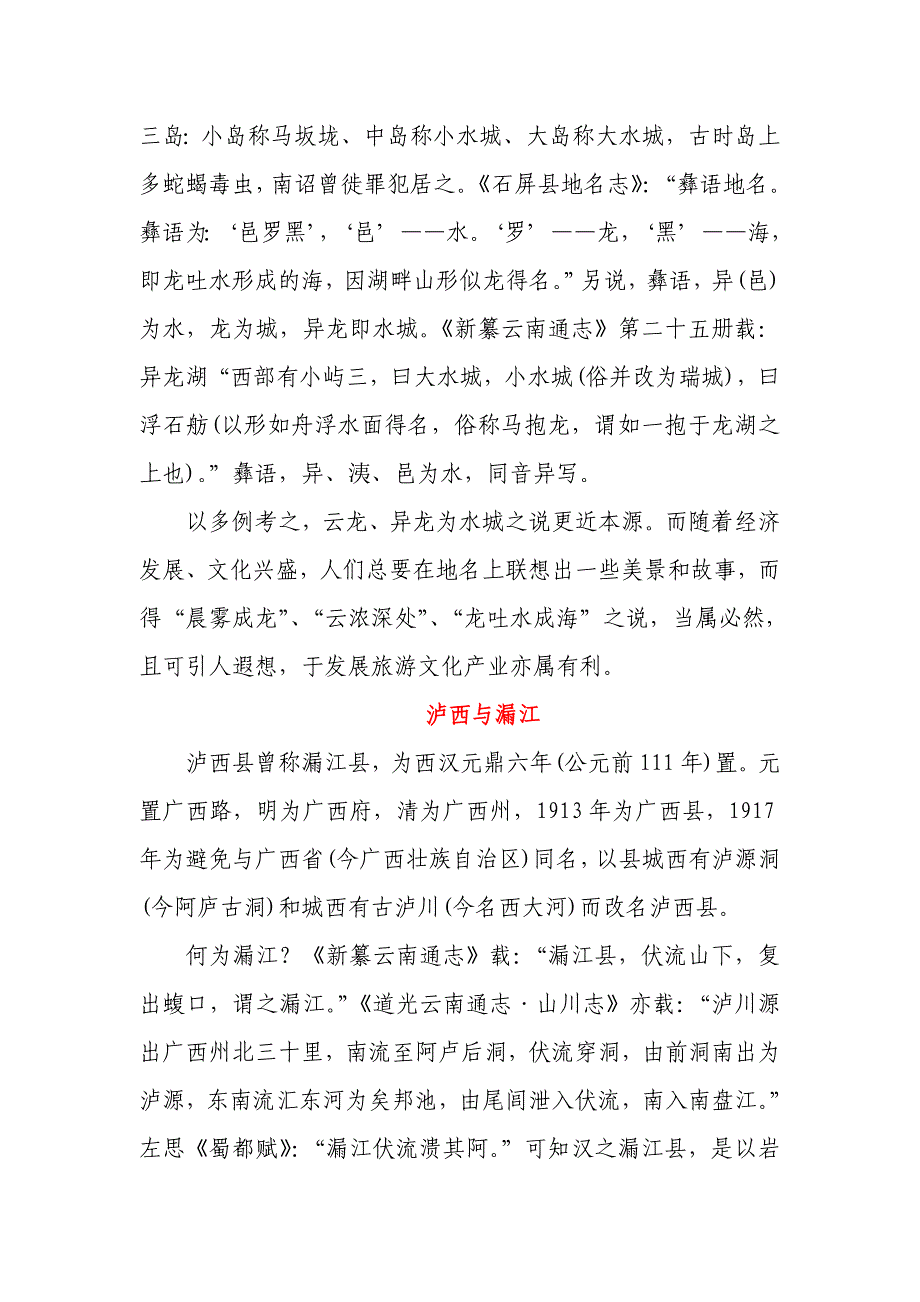 三岛：小岛称马坂垅、中岛称小水城、大岛称大水城，古时岛上
多蛇蝎毒虫，南诏曾徙罪犯居之。《石屏县地名志》：“彝语地名。
彝语为：‘邑罗黑’，‘邑’——水。‘罗’——龙，‘黑’——海，
即龙吐水形成的海，因湖畔山形似龙得名。”另说，彝语，异(邑)
为水，龙为城，异龙即水城。《新纂云南通志》第二十五册载：
异龙湖“西部有小屿三，曰大水城，小水城(俗并改为瑞城)，曰
浮石舫(以形如舟浮水面得名，俗称马抱龙，谓如一抱于龙湖之
上也)。”彝语，异、洟、邑为水，同音异写。
以多例考之，云龙、异龙为水城之说更近本源。而随着经济
发展、文化兴盛，人们总要在地名上联想出一些美景和故事，而
得“晨雾成龙”、“云浓深处”、“龙吐水成海”之说，当属必然，
且可引人遐想，于发展旅游文化产业亦属有利。
泸西与漏江
泸西县曾称漏江县，为西汉元鼎六年(公元前111年)置。元
置广西路，明为广西府，清为广西州，1913年为广西县，1917
年为避免与广西省(今广西壮族自治区)同名，以县城西有泸源洞
(今阿庐古洞)和城西有古泸川(今名西大河)而改名泸西县。
何为漏江？《新纂云南通志》载：“漏江县，伏流山下，复
出蝮口，谓之漏江。”《道光云南通志·山川志》亦载：“泸川源
出广西州北三十里，南流至阿卢后洞，伏流穿洞，由前洞南出为
泸源，东南流汇东河为矣邦池，由尾闾泄入伏流，南入南盘江。”
左思《蜀都赋》：“漏江伏流溃其阿。”可知汉之漏江县，是以岩